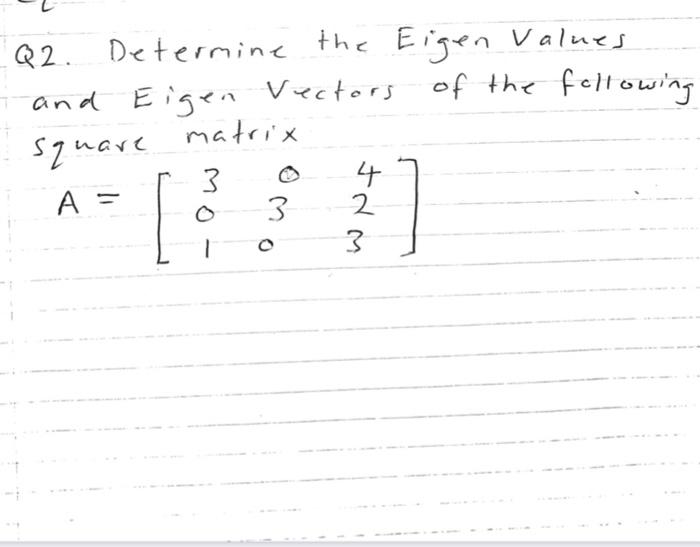 Q2. Determine the Eigen Values
and Eigen Vectors of the following
square matrix
A = [ 3 0 4
0 3 2
1 0 3 ]